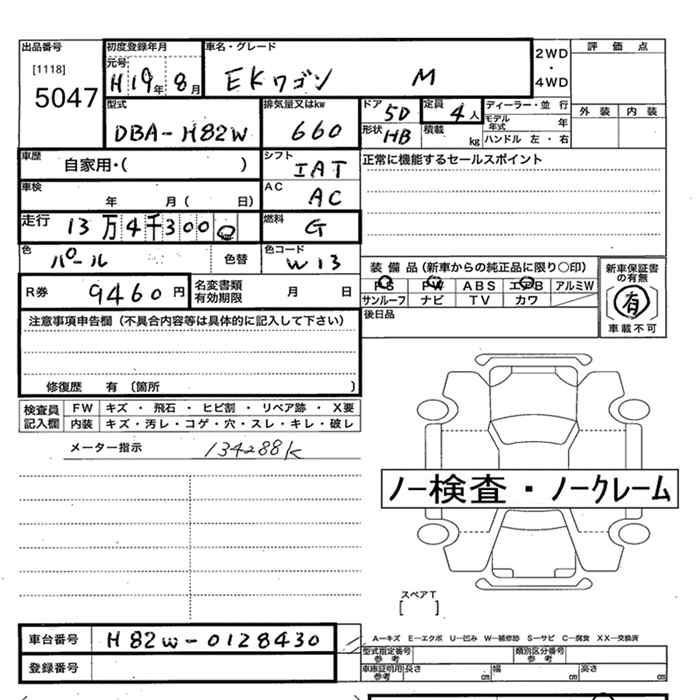 出品番号 初度登録年月 車名・グレード 2WD・4WD 評価点
[1118] 元号
5047 H19年8月 EKワゴン M
外装 内装
型式 排気量又はkw ドア 5D 定員 4人 ディーラー・並行
DBA-H82W 660 モデル年式 年
形状 HB 積載 kg ハンドル 左・右
車歴 自家用・( ) シフト IAT 正常に機能するセールスポイント
車検 年 月( 日) AC AC
走行 13万4千300 燃料 G
色 パール 色替 色コード W13
装備品(新車からの純正品に限り○印) 新車保証書の有無
PS PW ABS エアB アルミW
サンルーフ ナビ TV カワ 有
R券 9460円 名変書類有効期限 月 日 車載不可
後日品
注意事項申告欄(不具合内容等は具体的に記入して下さい)
修復歴 有 (箇所 )
検査員記入欄 FW キズ・飛石・ヒビ割・リペア跡・X要
内装 キズ・汚レ・コゲ・穴・スレ・キレ・破レ
メーター指示 134288K
ノー検査・ノークレーム
スペアT
[ ]
車台番号 H82W-0128430
A−キズ E−エクボ U−凹み W−補修跡 S−サビ C−腐食 XX−交換済
型式指定番号 参考 類別区分番号 参考
登録番号 車庫証明用 参考 長さ cm 幅 cm 高さ cm